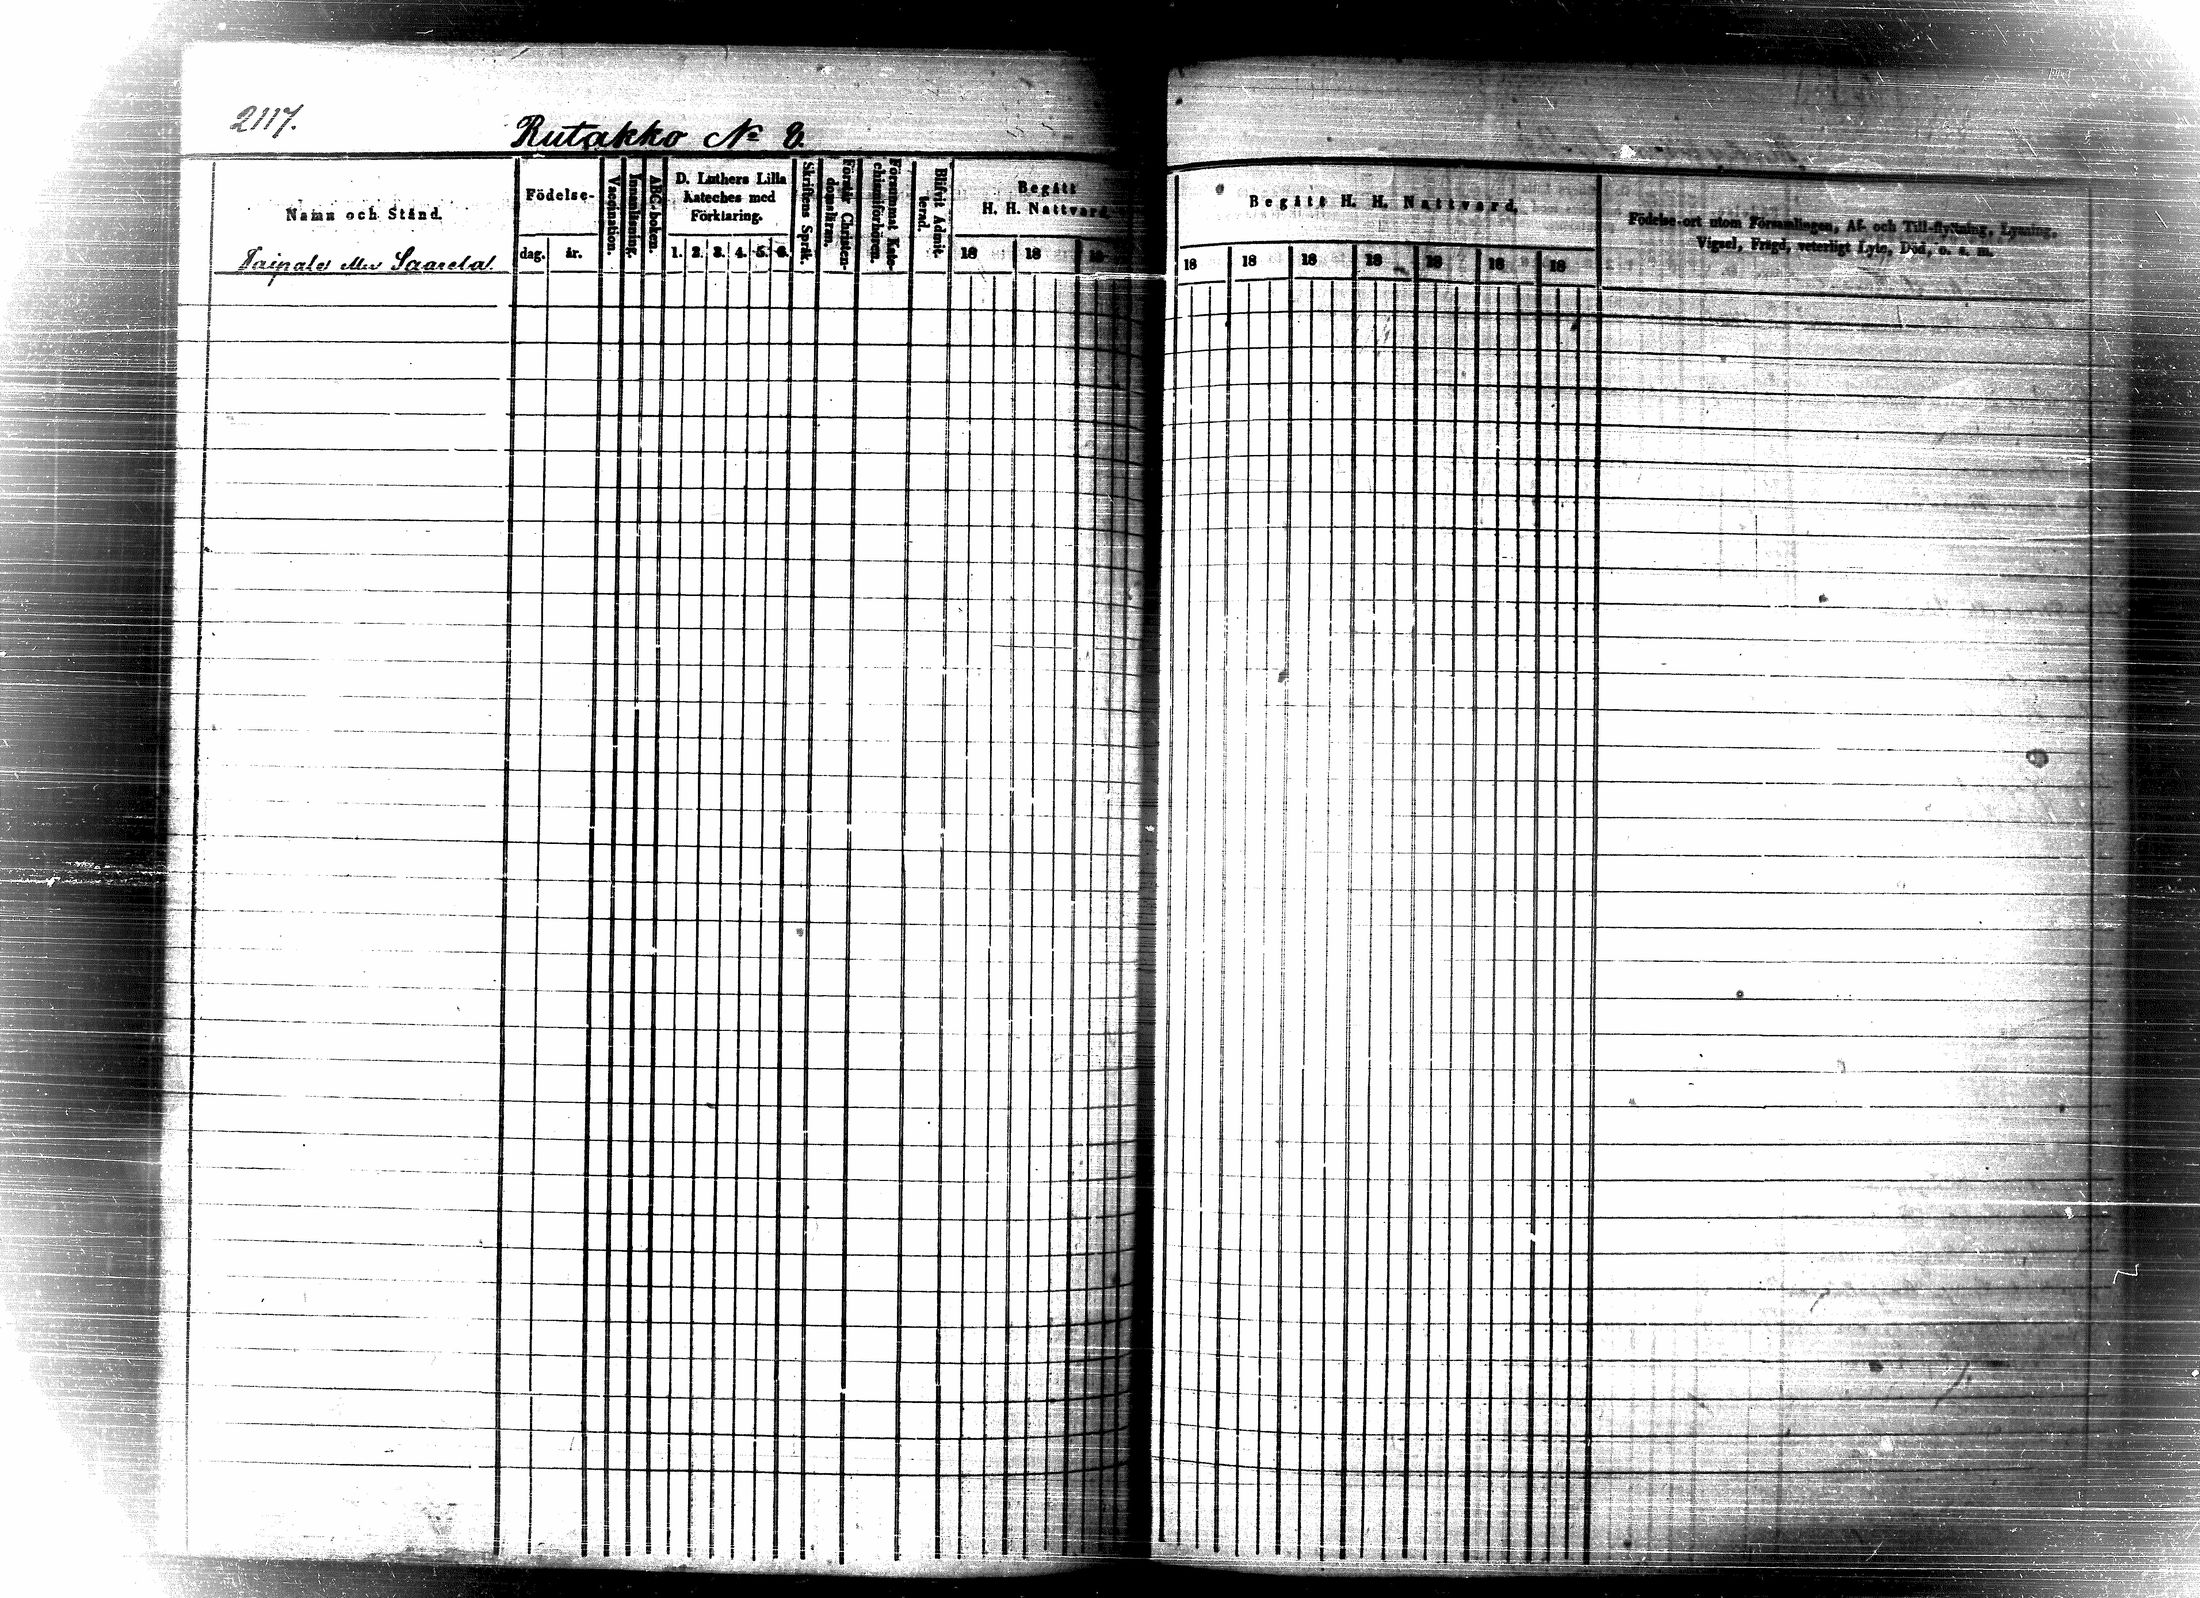 2117.
Rutakko № 8.
Namn och Stånd.
Födelse-
dag. år.
Vaccination.
Innanläsning.
ABC-boken.
D. Luthers Lilla
Kateches med
Förklaring.
1. 2. 3. 4. 5. 6.
Skriftens Språk.
Förstår Christen-
domsläran.
Försummat Kate-
chismiförhören.
Blifvit Admit-
terad.
Begått
H. H. Nattvard.
18 18 18
Taipale eller Saarela.
Begått H. H. Nattvard.
18 18 18 18 18 18 18
Födelse-ort utom Församlingen, Af- och Till-flyttning, Lysning,
Vigsel, Frägd, veterligt Lyte, Död, o. s. m.